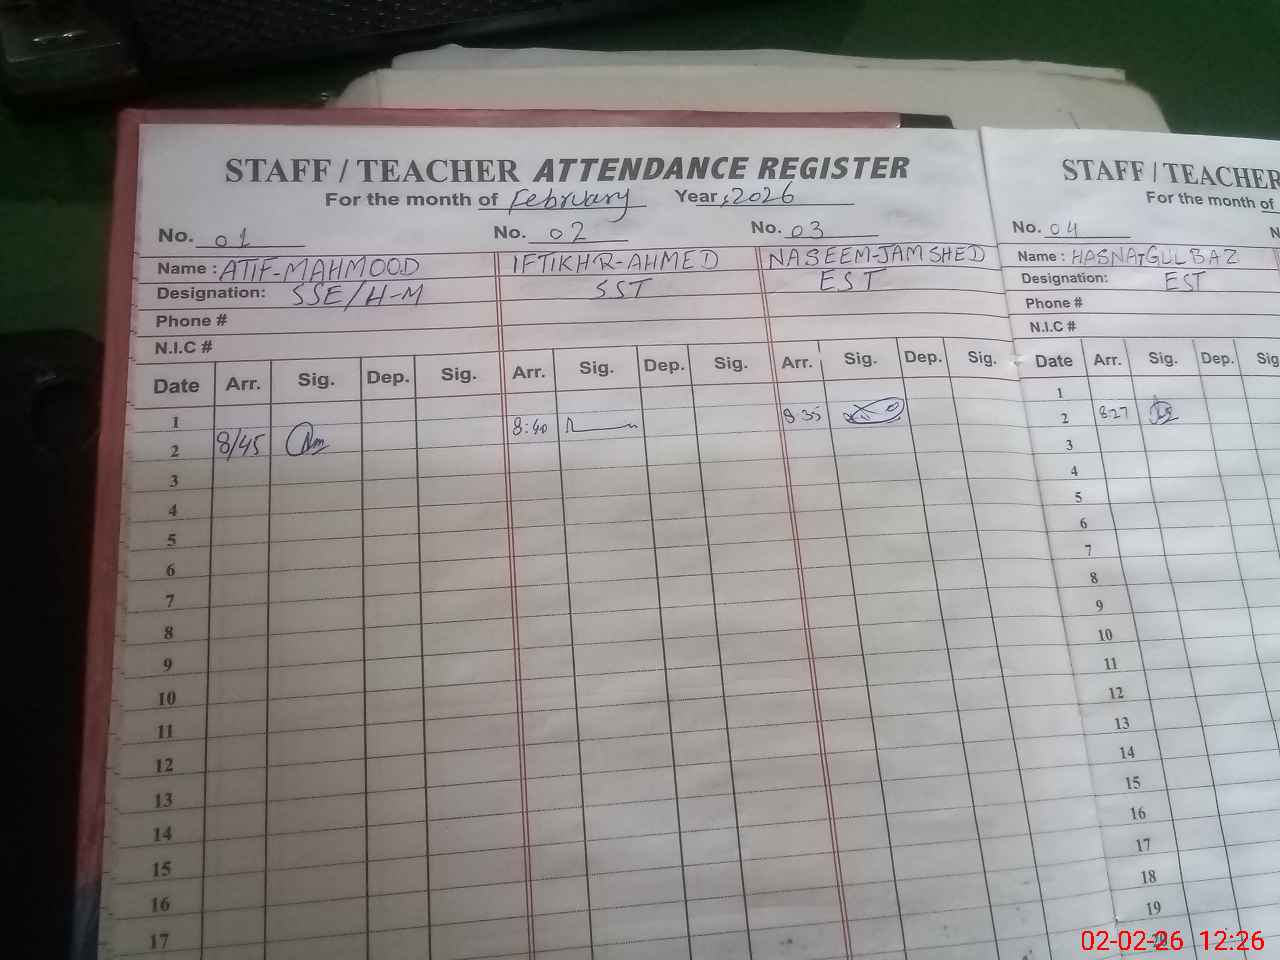 STAFF / TEACHER ATTENDANCE REGISTER
For the month of February Year 2026
No. 01 No. 02 No. 03
Name : ATIF-MAHMOOD IFTIKHR-AHMED NASEEM-JAMSHED
Designation: SSE/H-M SST EST
Phone #
N.I.C #
Date Arr. Sig. Dep. Sig. Arr. Sig. Dep. Sig. Arr. Sig. Dep. Sig.
1
2 8/45 8:40 8 35
3
4
5
6
7
8
9
10
11
12
13
14
15
16
17
STAFF / TEACHER
For the month of
No. 04 N
Name : HASNAT GULBAZ
Designation: EST
Phone #
N.I.C #
Date Arr. Sig. Dep. Sig
1
2 8:27
3
4
5
6
7
8
9
10
11
12
13
14
15
16
17
18
19
20
02-02-26 12:26